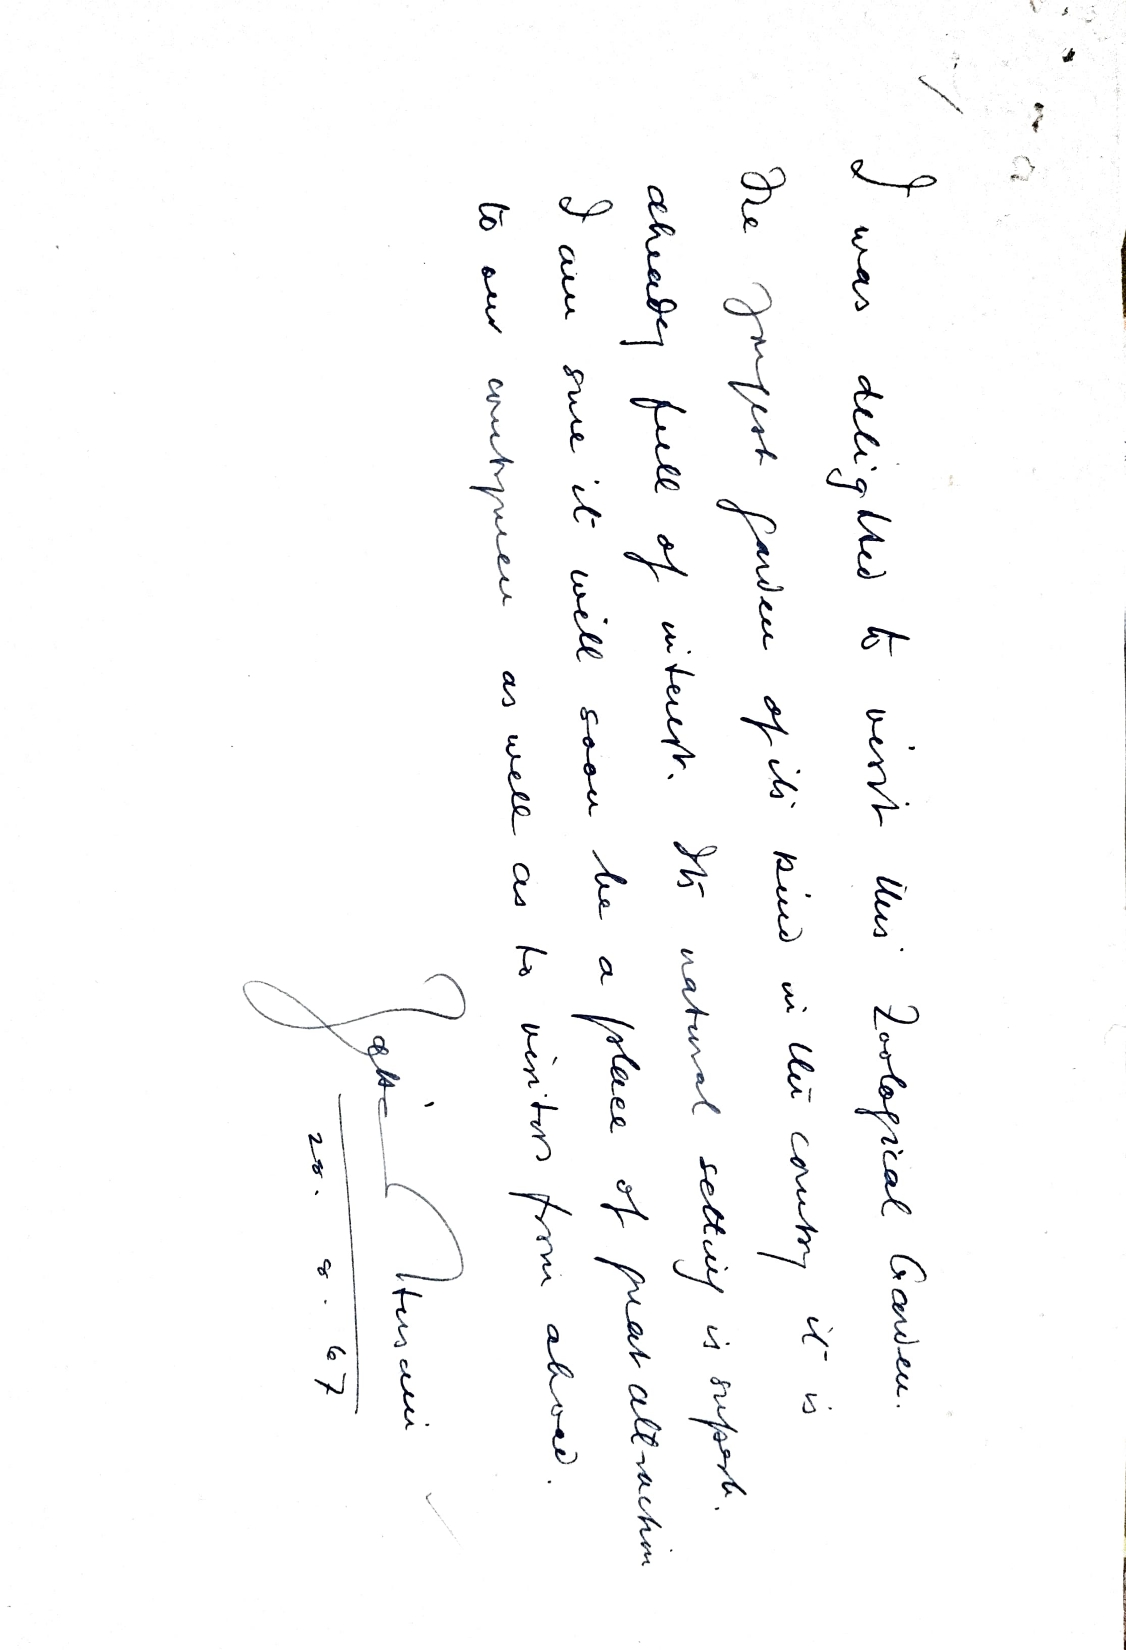 I was delighted to visit this Zoological Garden.
The youngest garden of its kind in the country it is
already full of interest. Its natural setting is superb.
I am sure it will soon be a place of great attraction
to our countrymen as well as to visitors from abroad.
Zakir Husain
28. 8. 67